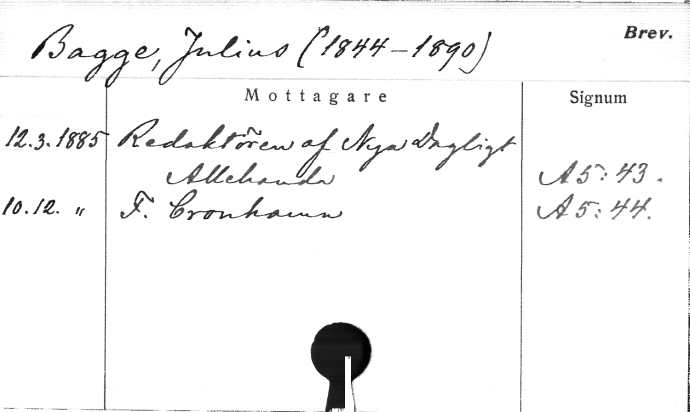 Brev.
Bagge, Julius (1844-1890)
Mottagare Signum
12.3.1885 Redaktören af Nya Dagligt
Allehanda A5:43.
10.12. " F. Cronhamn A5:44.